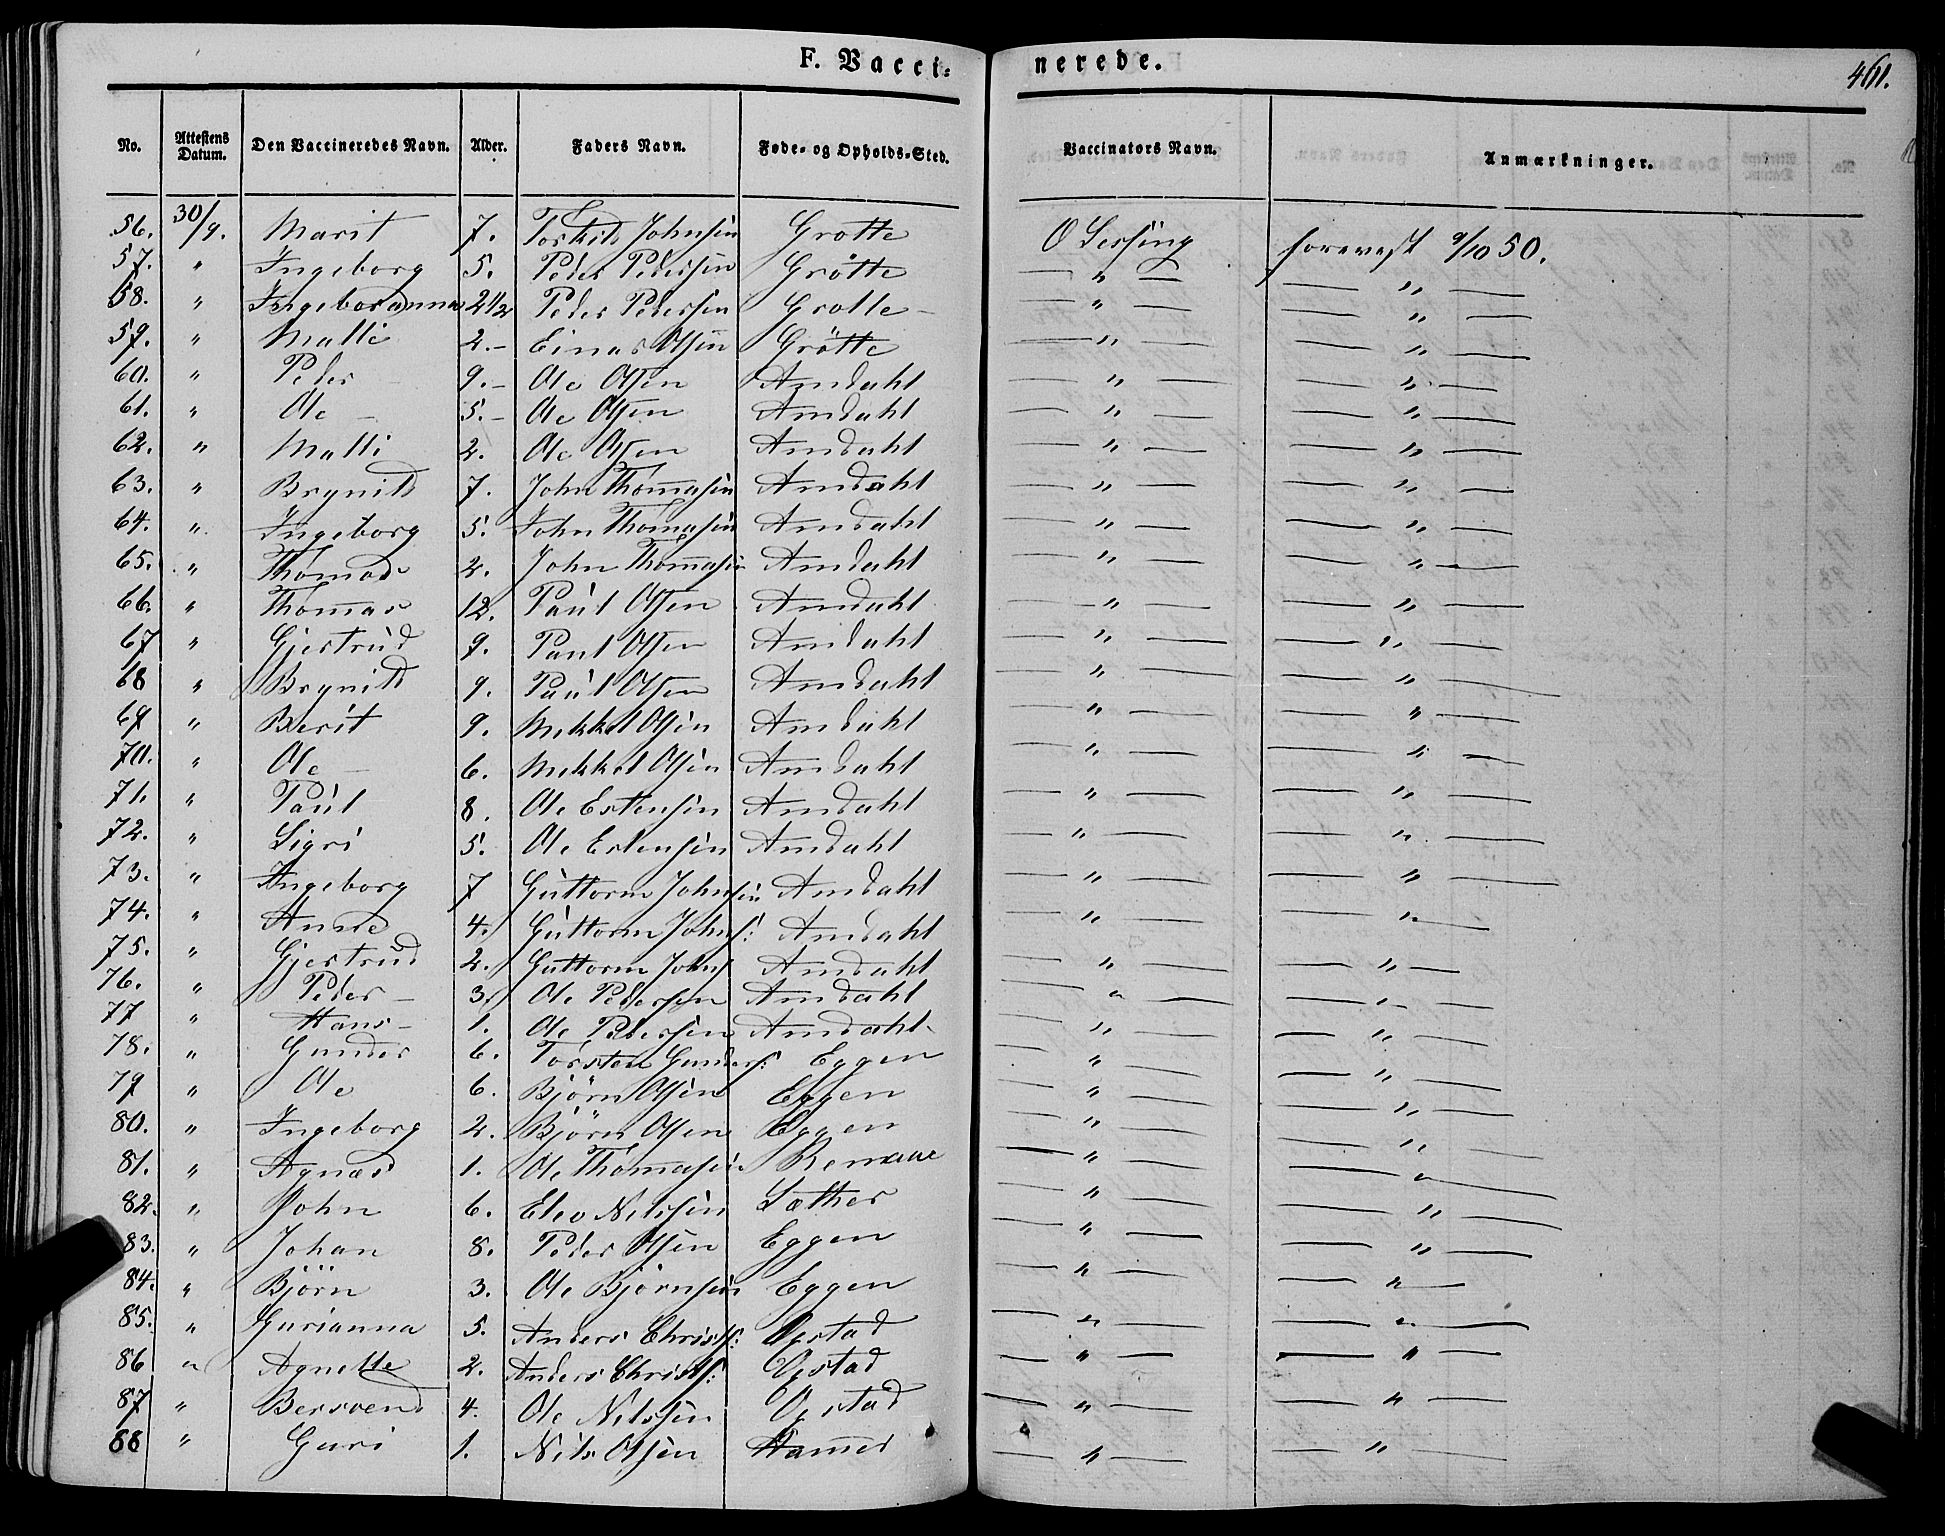 F. Vaccinerede.
461.
No. Attestens Datum. Den Vaccineredes Navn. Alder. Faders Navn. Føde- og Opholds-Sted. Vaccinators Navn. Anmærkninger.
56. 30/9. Marit 7. Torkild Johnsen Grøtte O Sessing forevist 9/10 50.
57. " Ingeborg 5. Peder Pedersen Grøtte — " — — " —
58. " Ingeboranna 2 1/2 Peder Pedersen Grøtte — " — — " —
59. " Malli 2. Einar Olsen Grøtte — " — — " —
60. " Peder 9. Ole Olsen Amdahl — " — — " —
61. " Ole 5. Ole Olsen Amdahl — " — — " —
62. " Malli 2. Ole Olsen Amdahl — " — — " —
63. " Brynild 7. John Thomasen Amdahl — " — — " —
64. " Ingeborg 5. John Thomasen Amdahl — " — — " —
65. " Thomas 2. John Thomasen Amdahl — " — — " —
66. " Thomas 12. Paul Olsen Amdahl — " — — " —
67 " Gjertrud 9. Paul Olsen Amdahl — " — — " —
68 " Brynild 9. Paul Olsen Amdahl — " — — " —
69 " Berit 9. Mikkel Olsen Amdahl — " — — " —
70. " Ole 6. Mikkel Olsen Amdahl — " — — " —
71. " Paul 8. Ole Estensen Amdahl — " — — " —
72. " Sigri 5. Ole Estensen Amdahl — " — — " —
73. " Ingeborg 7 Guttorm Johnsen Amdahl — " — — " —
74. " Anne 4. Guttorm Johns: Amdahl — " — — " —
75. " Gjertrud 2. Guttorm Johns Amdahl — " — — " —
76. " Peder 3. Ole Pedersen Amdahl — " — — " —
77 " Hans 1. Ole Pedersen Amdahl — " — — " —
78. " Gunder 6. Torsten Gunders: Eggen — " — — " —
79 " Ole 6. Bjørn Olsen Eggen — " — — " —
80. " Ingeborg 2. Bjørn Olsen Eggen — " — — " —
81. " Agnes 1. Ole Thomasen — " — — " —
82. " John 6. Elev Nilssen Sæther — " — — " —
83. " Johan 8. Peder Olsen Eggen — " — — " —
84. " Björn 3. Ole Bjørnsen Eggen — " — — " —
85. " Gurianna 5. Anders Christs: Opstad — " — — " —
86 " Agnette 2. Anders Christs: Opstad — " — — " —
87 " Bersvend 4. Ole Nilssen Opstad — " — — " —
88 " Guri 1. Nils Olsen Hammer — " — — " —